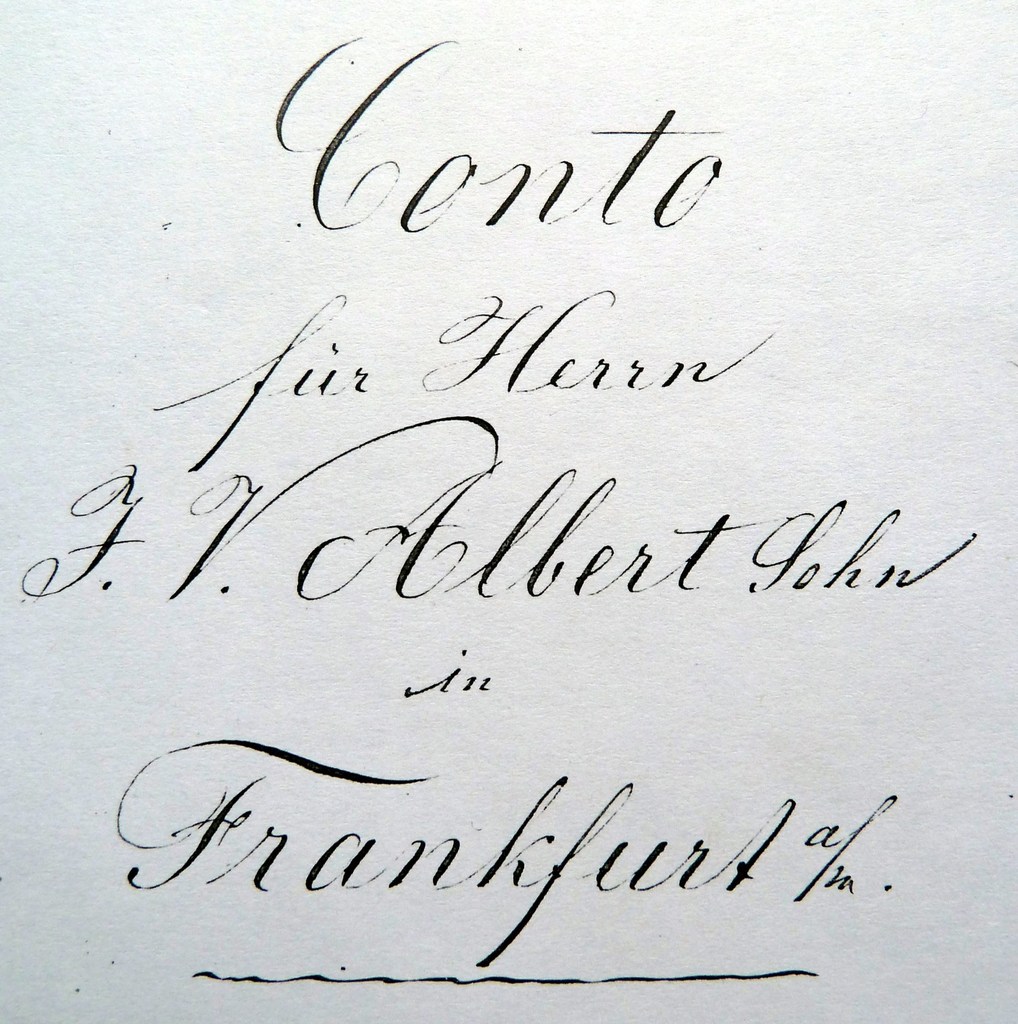 Conto
für Herrn
J. V. Albert Sohn
in
Frankfurt a/m.